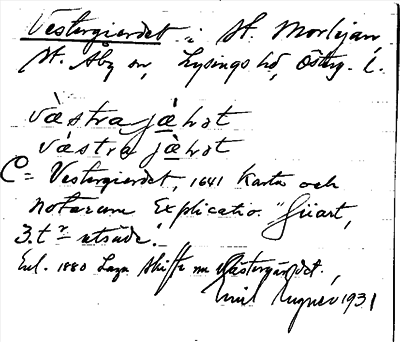 Vestergierdet i St. Morlejan,
St. Åby sn, Lysings hd, Österg. l.
västra jæ̀hɔt
västra jæ̀hɔt
C = Vestergierdet, 1641 Karta och
notarum Explicatio. "Giärt,
3. t:r utsäde".
Enl. 1880 Laga skifte nu Västergärdet.
Emil 1931